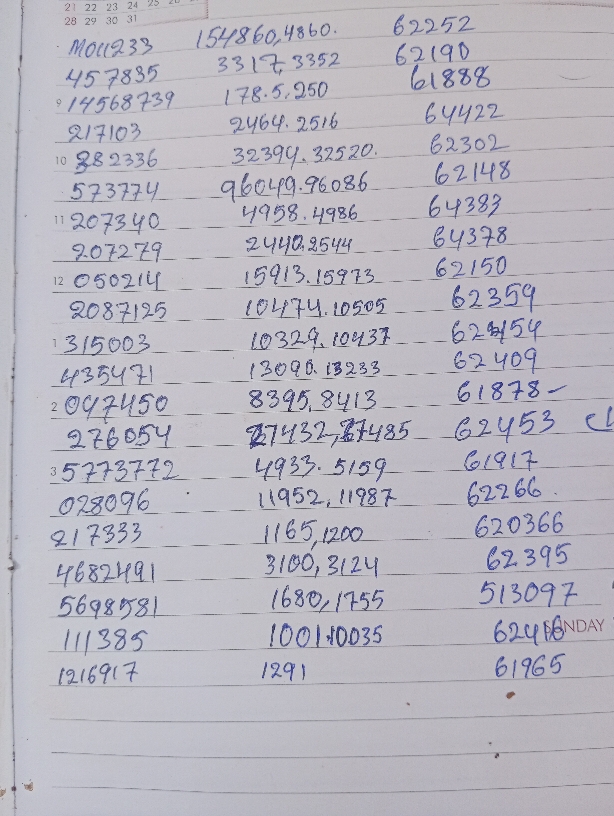 21 22 23 24 25 26
28 29 30 31
MOU233 154860,4860. 62252
457835 3317,3352 62190
9 14568739 178.5,250 61888
217103 2464.2516 64422
10 382336 32394.32520. 62302
573774 96049.96086 62148
11 207340 4958.4986 64383
207279 2440.2544 64378
12 050214 15913.15973 62150
2087125 10474.10505 62359
1 315003 10329.10437 62454
435471 13090.13233 62409
2 047450 8395,8413 61878-
276054 27432,27485 62453
3 5773772 4933.5159 61917
028096 11952,11987 62266
217333 1165,1200 620366
4682491 3100,3124 62395
5698581 1680,1755 513097
111385 1001.10035 62416 SUNDAY
1216917 1291 61965